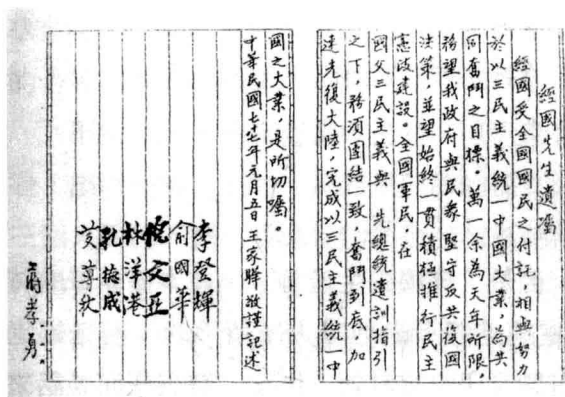 經國先生遺囑
經國受全國國民之付託，相與努力
於以三民主義統一中國大業，為共
同奮鬥之目標。萬一余為天年所限，
務望我政府與民眾堅守反共復國
決策，並望始終一貫積極推行民主
憲政建設。全國軍民，在
國父三民主義與 先總統遺訓指引
之下，務須團結一致，奮鬥到底，加
速光復大陸，完成以三民主義統一中
國之大業，是所切囑。
中華民國七十七年元月五日 王家驊敬謹記述
李登輝
俞國華
倪文亞
林洋港
孔德成
黃尊秋
蔣孝勇